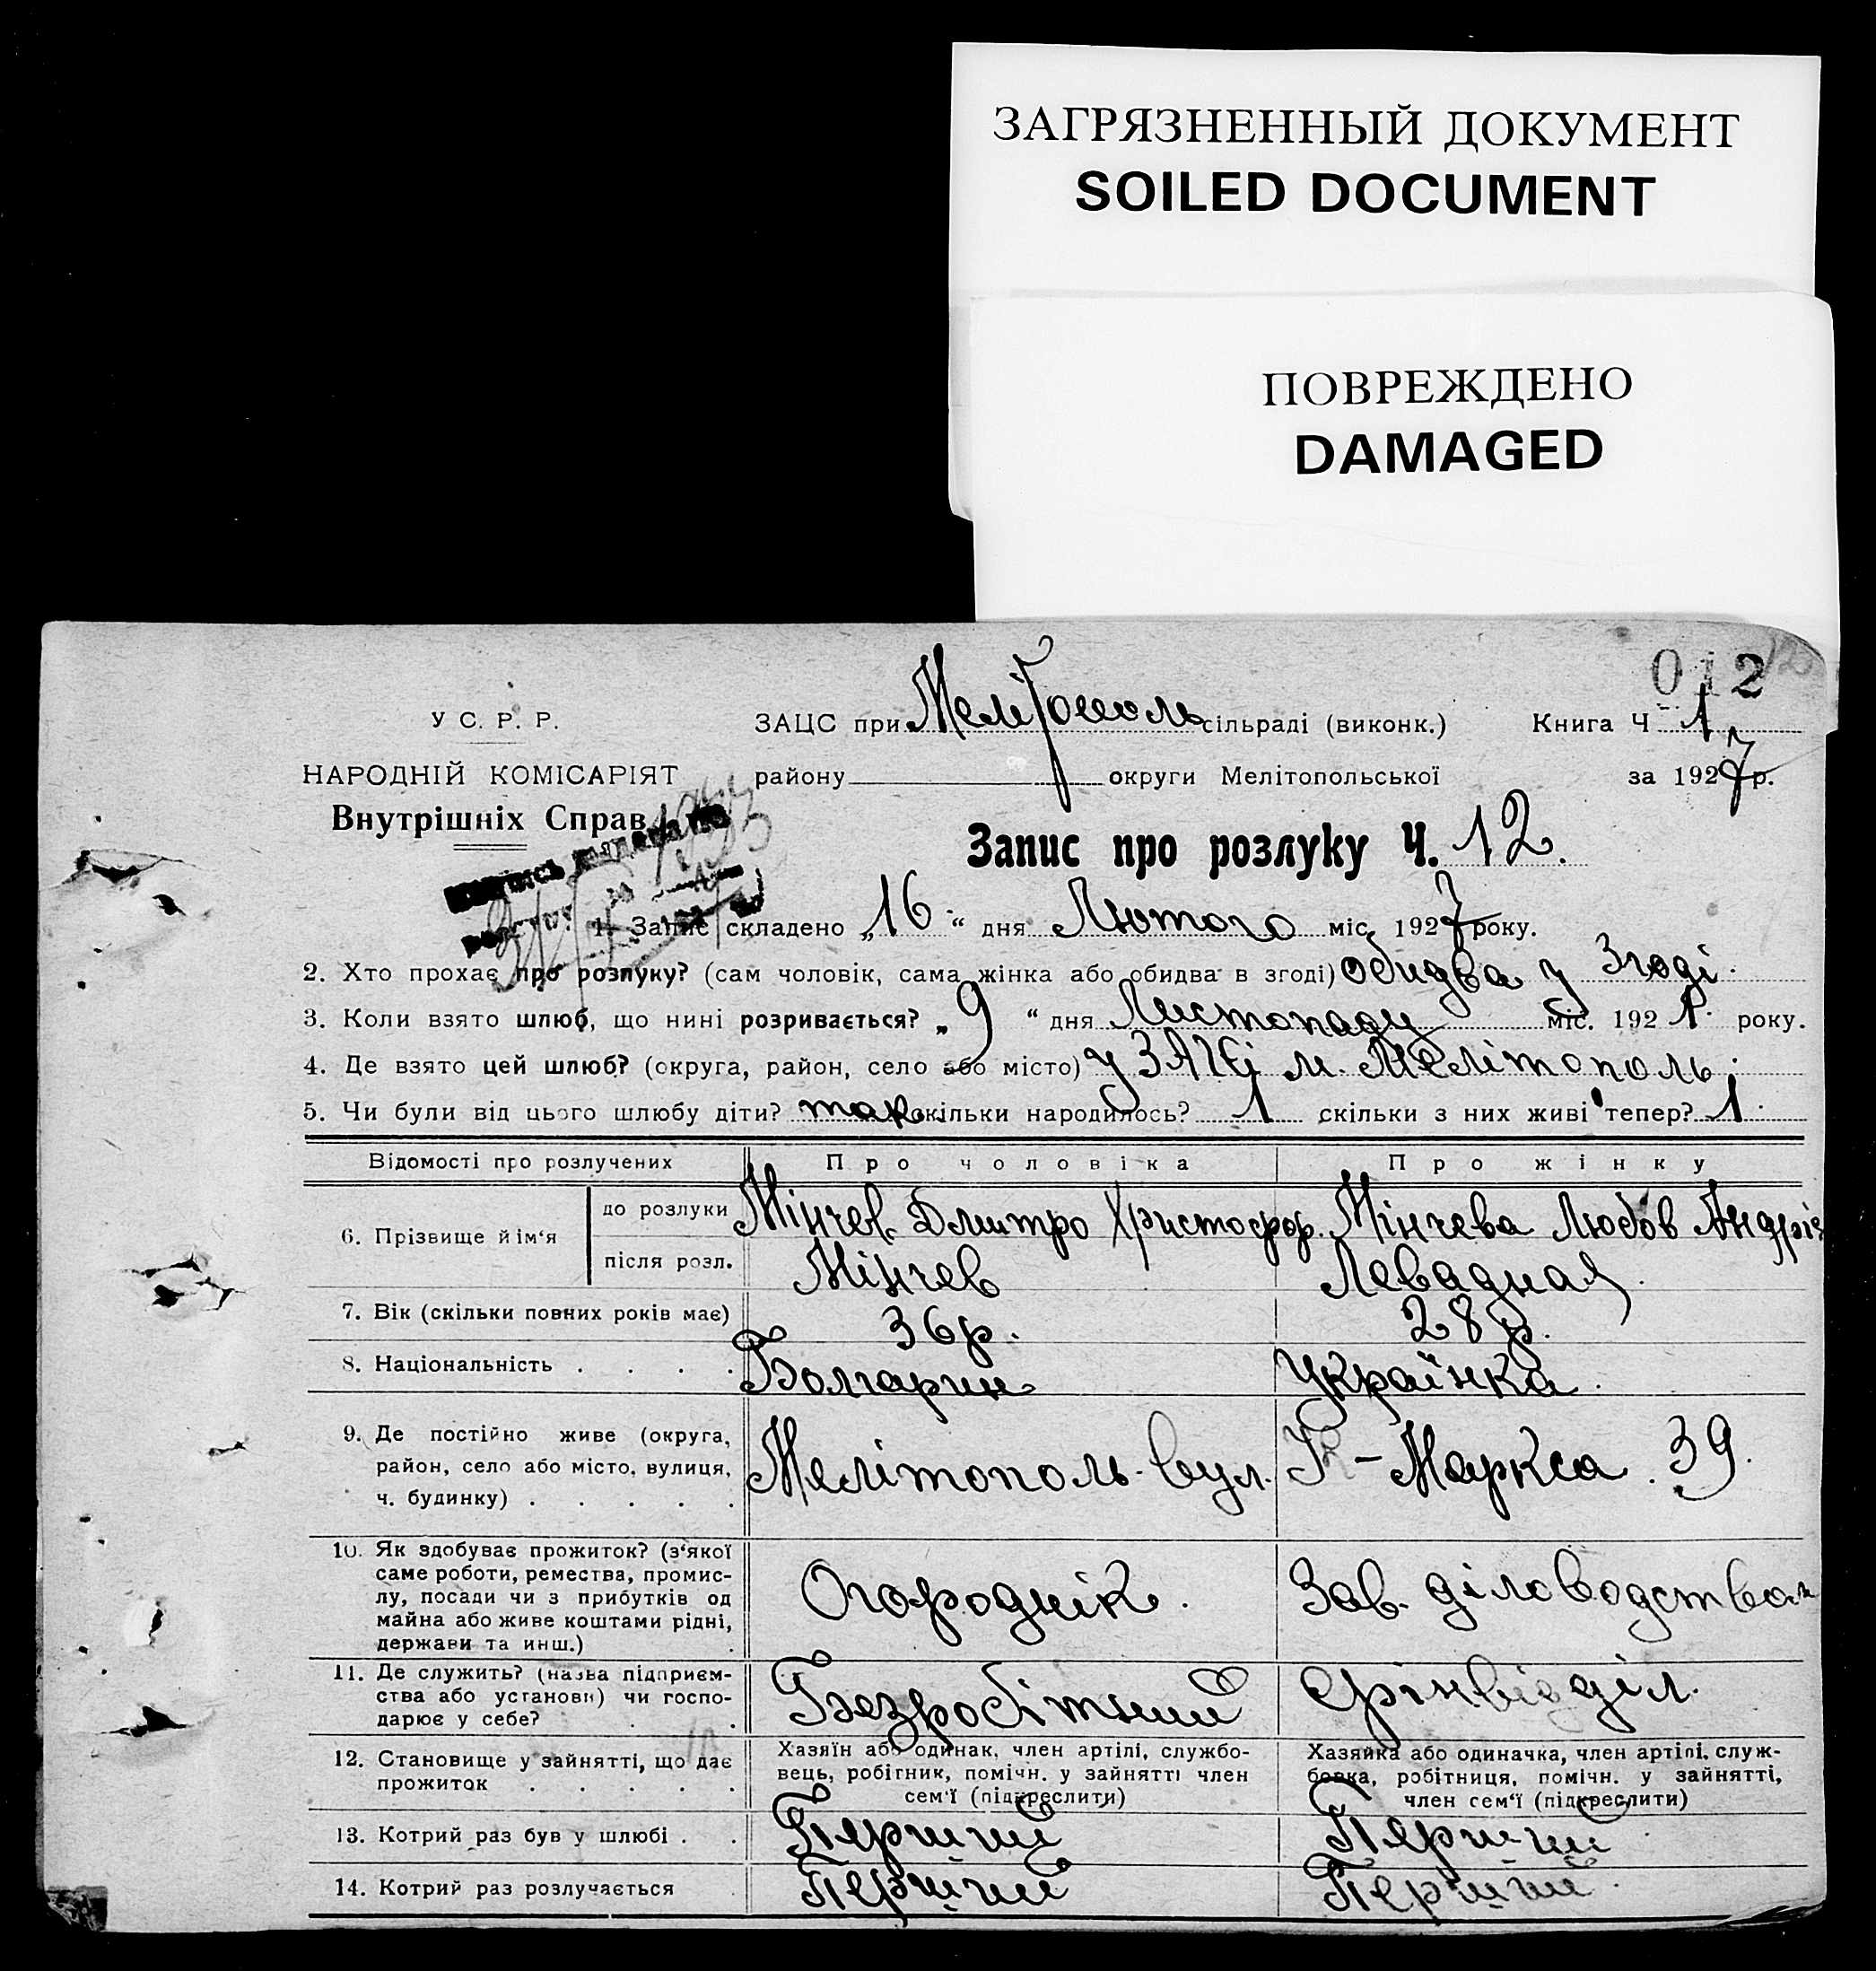 ЗАГРЯЗНЕННЫЙ ДОКУМЕНТ
SOILED DOCUMENT
ПОВРЕЖДЕНО
DAMAGED
012
У С. Р. Р.
ЗАЦС при Мелітополь сільраді (виконк.) Книга Ч 1
НАРОДНІЙ КОМІСАРІЯТ
району округи Мелітопольської за 1927 р.
Внутрішніх Справ
Запис про розлуку Ч. 12.
1. Запис складено „16“ дня Лютого міс. 1927 року.
2. Хто прохає про розлуку? (сам чоловік, сама жінка або обидва в згоді) обидва у згоді.
3. Коли взято шлюб, що нині розривається? „9“ дня Листопаду міс. 1921. року.
4. Де взято цей шлюб? (округа, район, село або місто) у ЗАГСі м. Мелітополь.
5. Чи були від цього шлюбу діти? так скільки народилось? 1 скільки з них живі тепер? 1.
Відомості про розлучених Про чоловіка Про жінку
6. Прізвище й ім‘я
до розлуки Мінчев Дмитро Христофор. Мінчева Любов Андрі
після розл. Мінчев Левадная
7. Вік (скільки повних років має) 36 р. 28 р.
8. Національність . . . . Болгарин Українка.
9. Де постійно живе (округа,
район, село або місто, вулиця,
ч. будинку) . . . . .
Мелітополь вул. К-Маркса. 39.
10. Як здобуває прожиток? (з‘якої
саме роботи, ремества, промис-
лу, посади чи з прибутків од
майна або живе коштами рідні,
держави та инш.)
Огороднік. Зав. діловодством
11. Де служить? (назва підприєм-
ства або установи) чи госпо-
дарює у себе?
Безробітний Фінвідділ.
12. Становище у зайнятті, що дає
прожиток . . . . .
Хазяїн або одинак, член артілі, службо-
вець, робітник, помічн. у зайнятті член
сем‘ї (підкреслити)
Хазяйка або одиначка, член артілі, служ-
бовка, робітниця, помічн. у зайнятті,
член сем‘ї (підкреслити)
13. Котрий раз був у шлюбі . . Перший Перший
14. Котрий раз розлучається Перший Перший.